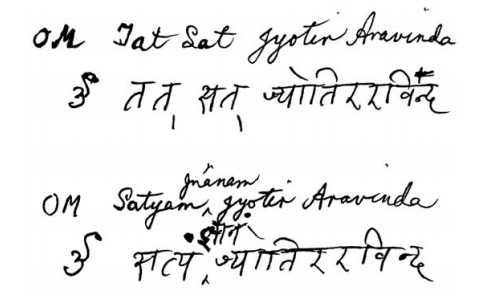 OM Tat Sat Jyotir Aravinda
ॐ तत् सत् ज्योतिररविन्द
Jnānam
OM Satyam, Jyotir Aravinda
ज्ञानं
ॐ सत्यं ज्योतिररविन्द